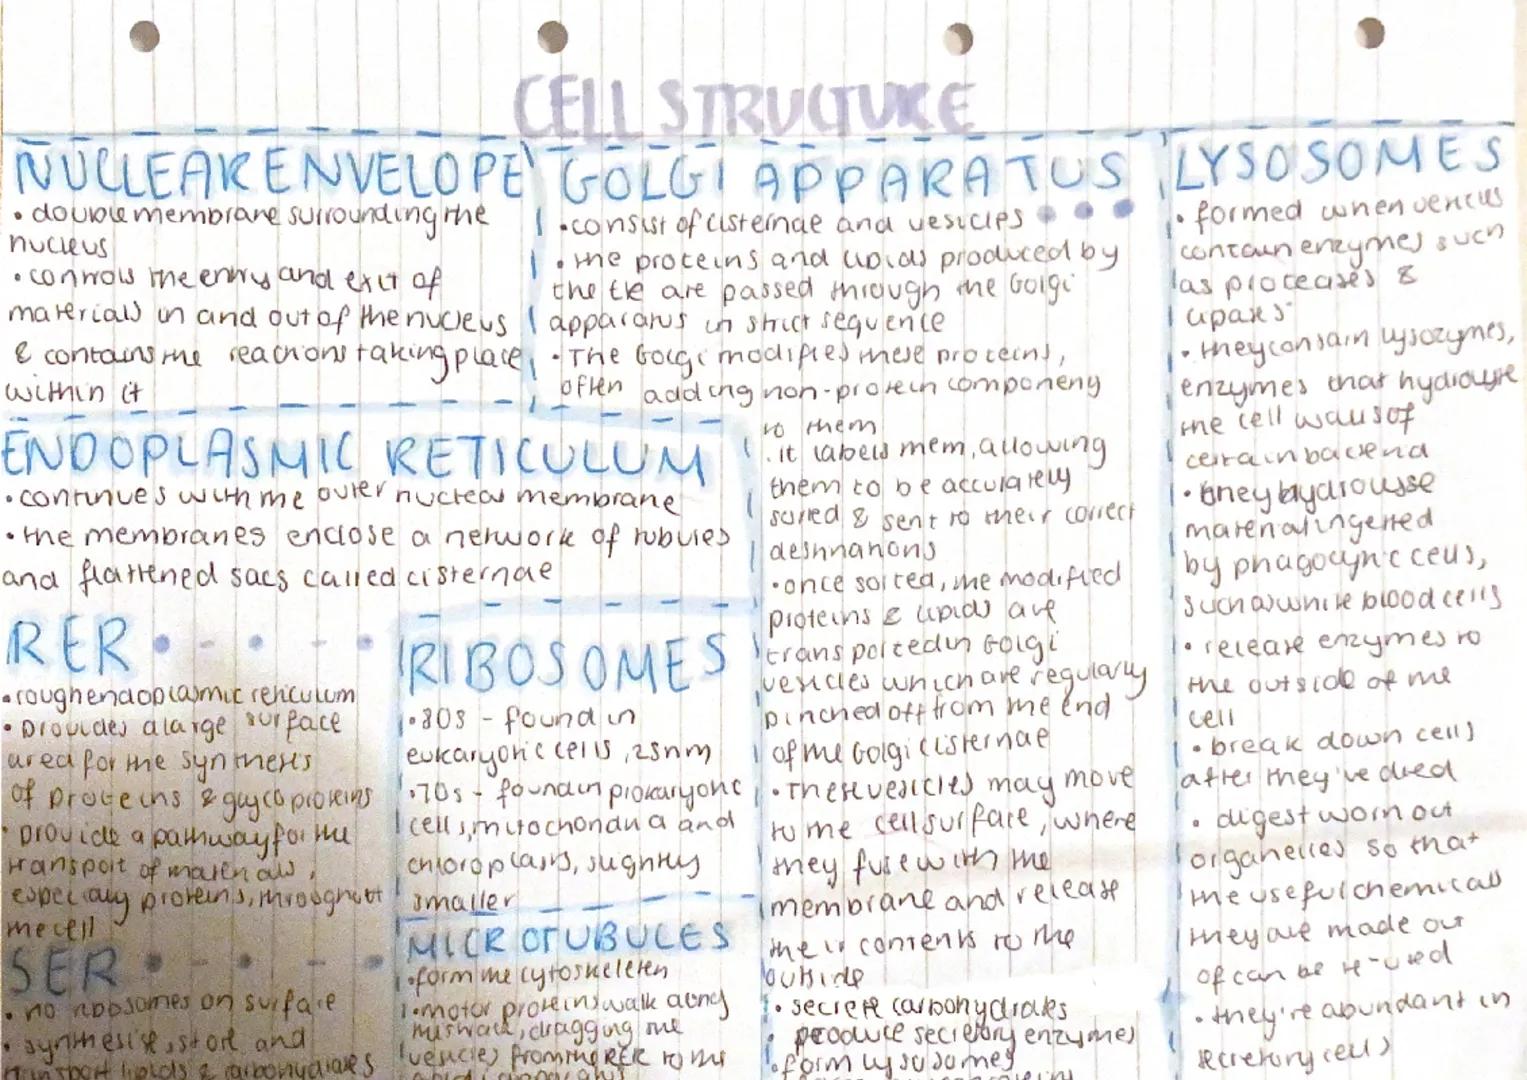 CELL STRUCTURE
NUCLEAR ENVELOPE
• double membrane surrounding the
nucleus
• controls the entry and exit of
materials in and out of the nucleus
& contains the reactions taking place
within it
ENDOPLASMIC RETICULUM
• continues with the outer nuclear membrane
• the membranes enclose a network of tubules
and flattened sacs called cisternae
RER
• rough endoplasmic reticulum
• provides a large surface
area for the synthesis
of proteins & glycoproteins
• provide a pathway for the
transport of materials,
especially proteins, throughout
the cell
SER
• no ribosomes on surface
• synthesise, store and
transport lipids & carbohydrates
RIBOSOMES
• 80s - found in
eukaryotic cells, 25nm
• 70s - found in prokaryotic
cells, mitochondria and
chloroplasts, slightly
smaller
MICROTUBULES
• form the cytoskeleten
• motor proteins walk along
dragging the
vesicles from the RER to the
GOLGI APPARATUS
• consist of cisternae and vesicles
• the proteins and lipids produced by
the ER are passed through the Golgi
apparatus in strict sequence
• The Golgi modifies these proteins,
often adding non-protein components
to them
• it labels them, allowing
them to be accurately
sorted & sent to their correct
destinations
• once sorted, the modified
proteins & lipids are
transported in Golgi
vesicles which are regularly
pinched off from the end
of the Golgi cisternae
• These vesicles may move
to the cell surface, where
they fuse with the
membrane and release
their contents to the
outside
• secrete carbohydrates
• produce secretory enzymes
• form lysosomes
LYSOSOMES
• formed when vesicles
contain enzymes such
as proteases &
lipases
• they contain lysozymes,
enzymes that hydrolyse
the cell walls of
certain bacteria
• they hydrolysse
material ingested
by phagocytic cells,
such as white blood cells
• release enzymes to
the outside of the
cell
• break down cells
after they've died
• digest worn out
organelles so that
the useful chemicals
they are made out
of can be re-used
• they're abundant in
secretory cells